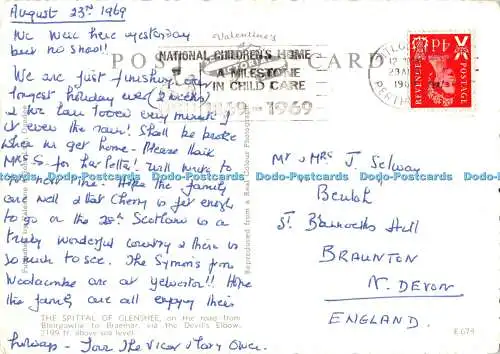 August 23rd 1969
We were here yesterday
but no snow!!
We are just finishing our
longest holiday ever (2 weeks)
& we have loved every minute of
it even the rain! Shall be broke
when we get home - Please thank
Mrs S. for her letter! Will write to
her next time. Hope the family
are well & that Cherry is fit enough
to go on the 28th Scotland is a
truly wonderful country & there is
so much to see. The Symons from
Woolacombe are at Yelverton!! Hope
the family are all enjoying their
holidays - Love The Vicar & Mary Owen.
THE SPITTAL OF GLENSHEE, on the road from
Blairgowrie to Braemar, via the Devil's Elbow.
2199 ft. above sea level.
Valentine's
POST CARD
NATIONAL CHILDREN'S HOME
A MILESTONE
IN CHILD CARE
1869-1969
PERTH
REVENUE
POSTAGE
4d
Reproduced from a Real Colour Photograph
Mr & Mrs J. Selway
Beulah
St. Brannocks Hill
BRAUNTON
N. DEVON
ENGLAND.
Dodo-Postcards Dodo-Postcards Dodo-Postcards Dodo-Postcards